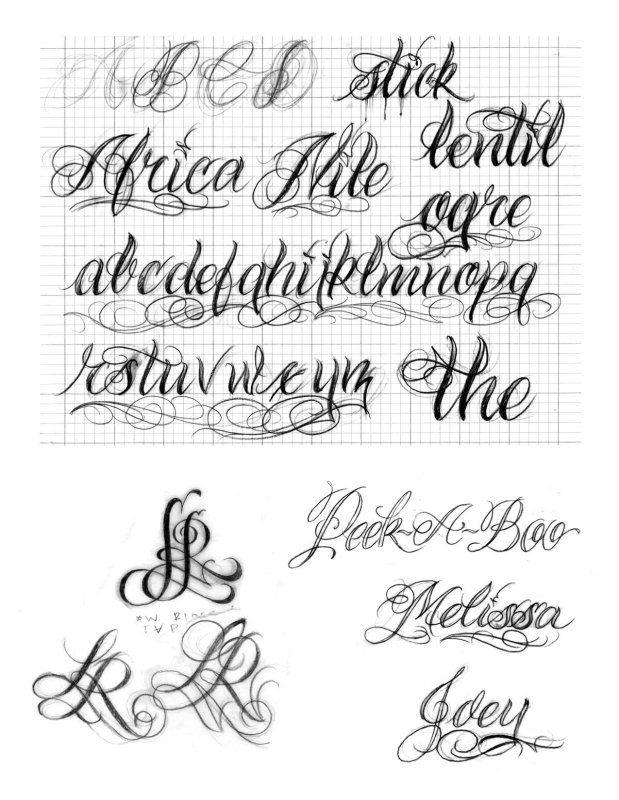 A B C D
stick
lentil
Africa Nile
ogre
abcdefghijklmnopq
rstuvwxyz
the
LR
Peek-A-Boo
LR LR
Melissa
Joey